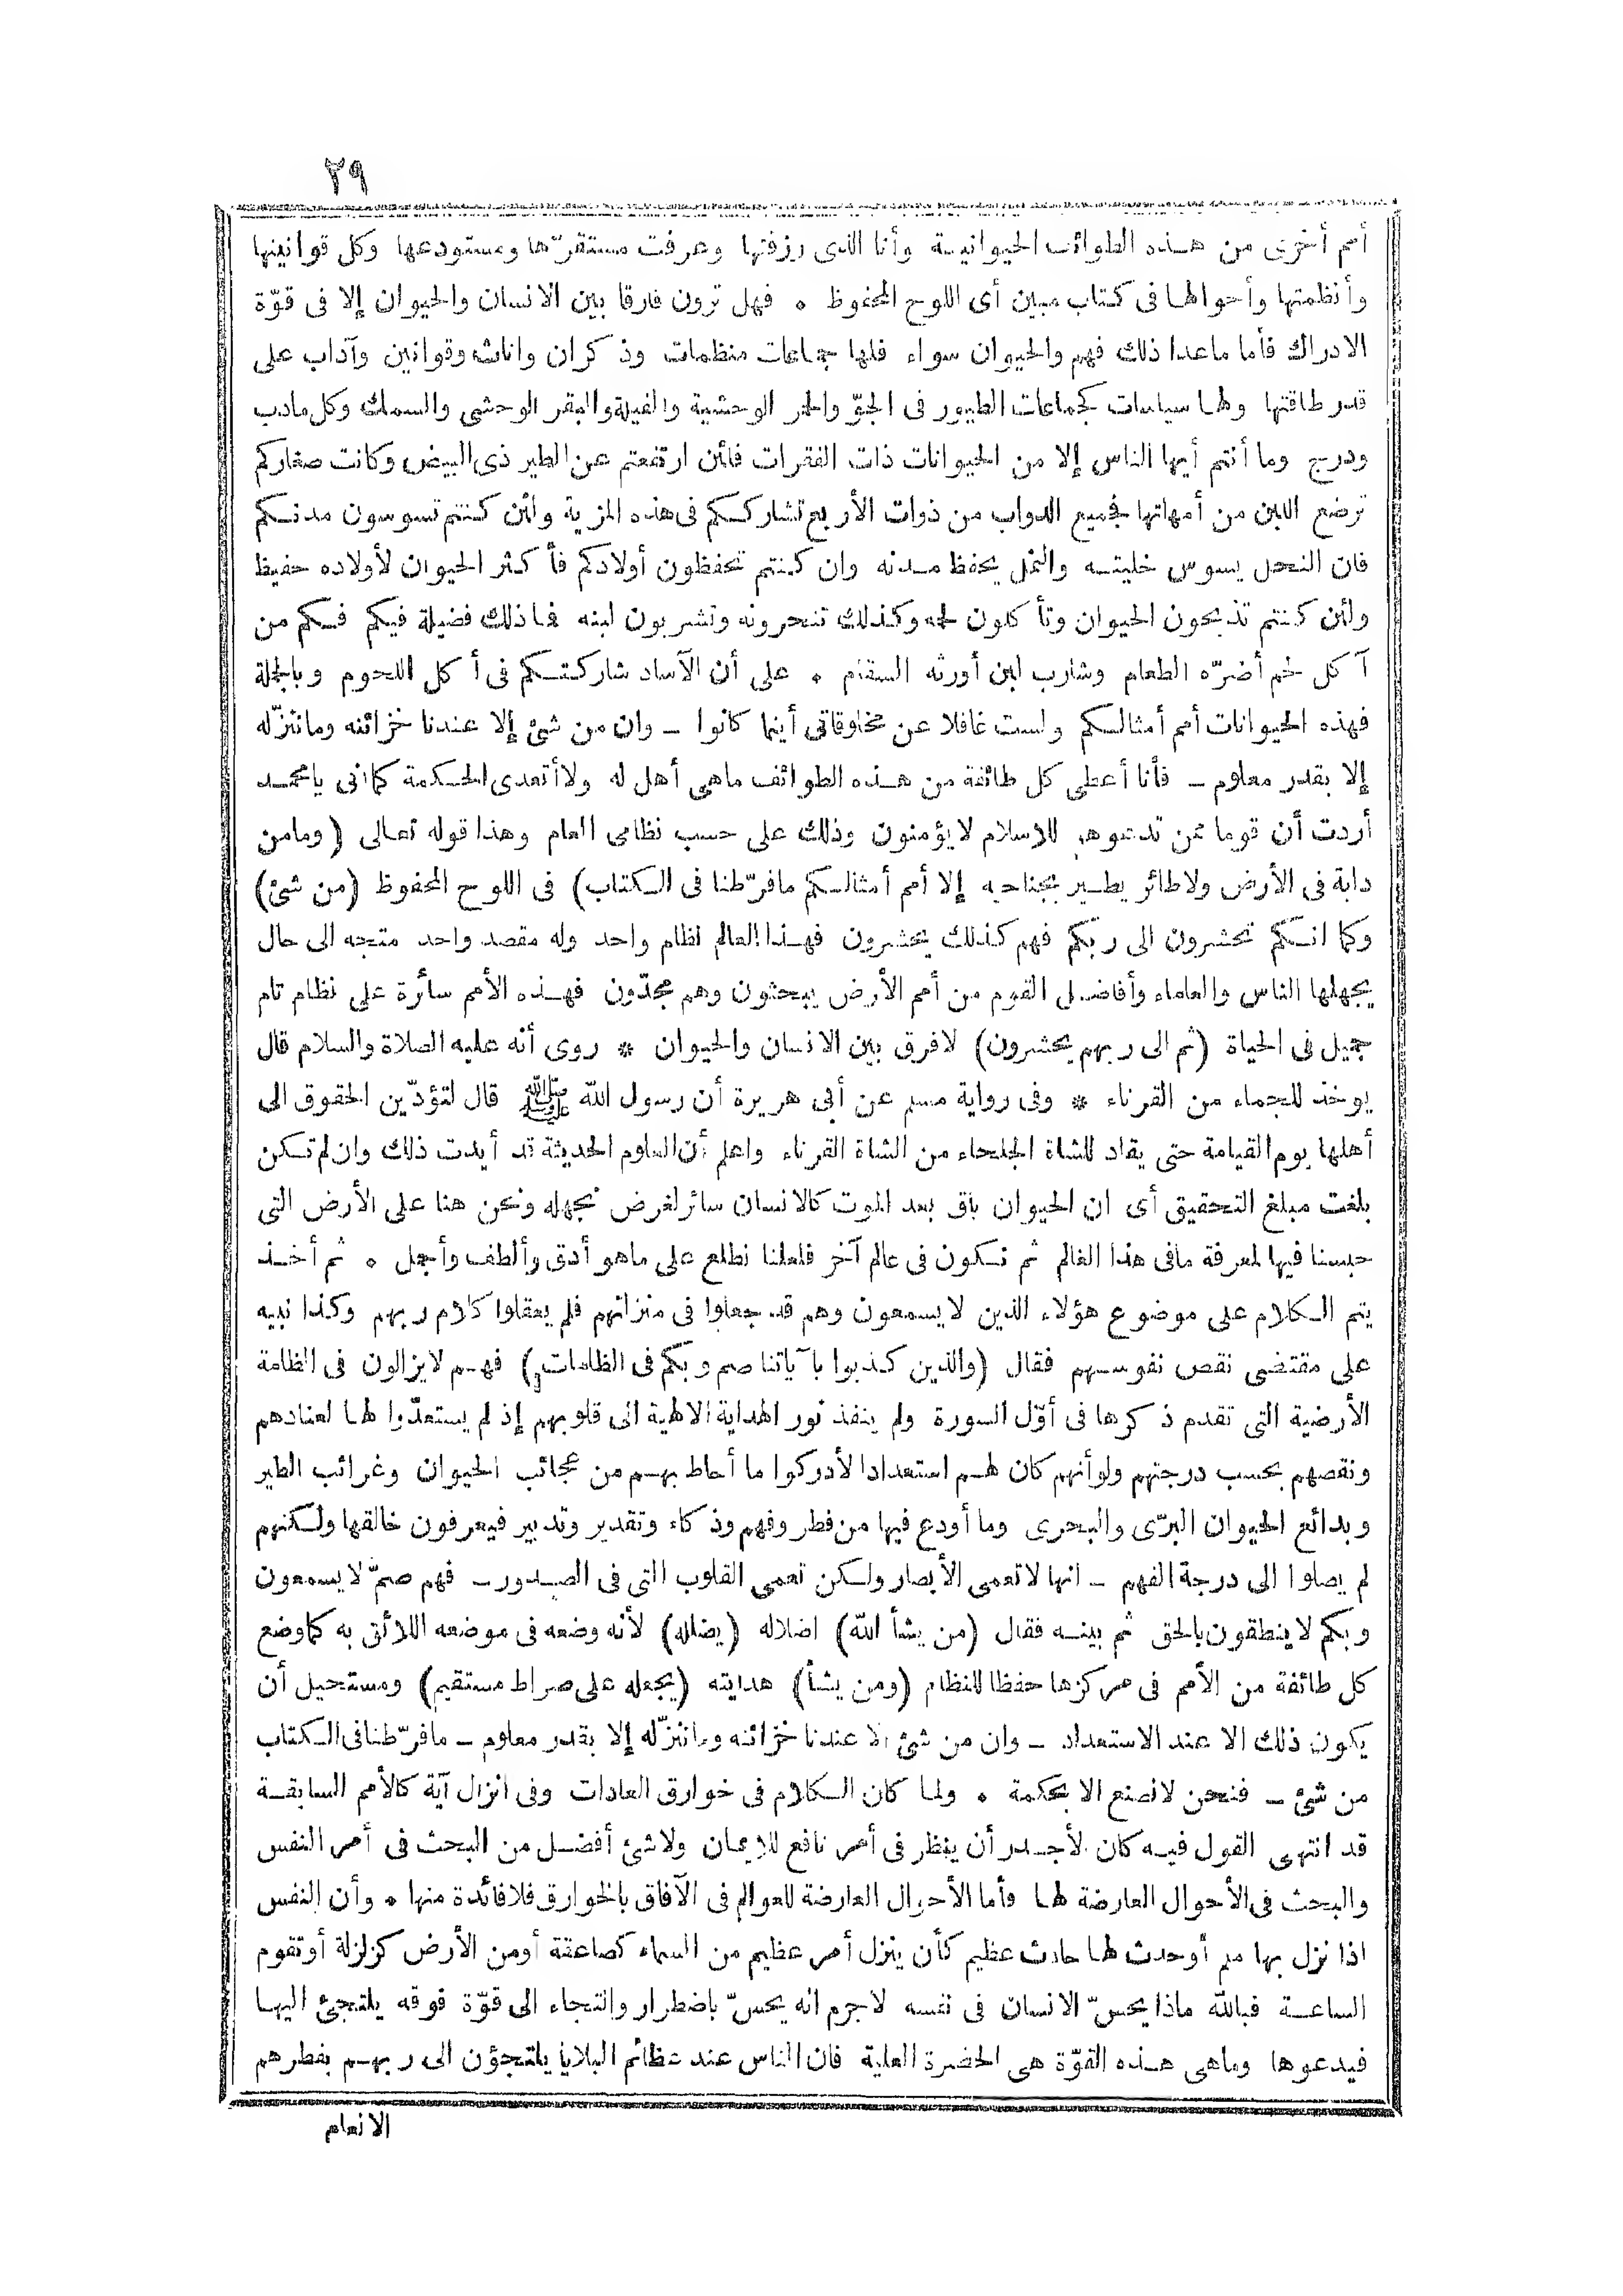 ٢٩
أمم أخرى من هذه الطوائف الحيوانية وأنا الذى رزقتها وعرفت مستقرّها ومستودعها وكل قوانينها
وأنظمتها وأحوالها فى كتاب مبين أى اللوح المحفوظ ٠ فهل ترون فارقا بين الانسان والحيوان إلا فى قوّة
الادراك فأما ماعدا ذلك فهم والحيوان سواء فلها جماعات منظمات وذكران واناث وقوانين وآداب على
قدر طاقتها ولها سياسات كجماعات الطيور فى الجوّ والحمر الوحشية والفيلة والبقر الوحشى والسمك وكل مادب
ودرج وما أنتم أيها الناس إلا من الحيوانات ذات الفقرات فلئن ارتفعتم عن الطير ذى البيض وكانت صغاركم
ترضع اللبن من أمهاتها فجميع الدواب من ذوات الأربع تشارككم فى هذه المزية ولئن كنتم تسوسون مدنكم
فان النحل يسوس خليته والنمل يحفظ مدنه وان كنتم تحفظون أولادكم فأكثر الحيوان لأولاده حفيظ
ولئن كنتم تذبحون الحيوان وتأكلون لحمه وكذلك تنحرونه وتشربون لبنه فماذلك فضيلة فيكم فكم من
آكل لحم أضرّه الطعام وشارب لبن أورثه السقام ٠ على أن الآساد شاركتكم فى أكل اللحوم وبالجملة
فهذه الحيوانات أمم أمثالكم ولست غافلا عن مخلوقاتى أينما كانوا - وان من شئ إلا عندنا خزائنه وماننزّله
إلا بقدر معلوم - فأنا أعطى كل طائفة من هذه الطوائف ماهى أهل له ولا أتعدى الحكمة كما انى يا محمد
أردت أن قوما ممن تدعوهم للاسلام لايؤمنون وذلك على حسب نظامى العام وهذا قوله تعالى (ومامن
دابة فى الأرض ولاطائر يطير بجناحيه إلا أمم أمثالكم مافرّطنا فى الكتاب) فى اللوح المحفوظ (من شئ)
وكما انكم تحشرون الى ربكم فهم كذلك يحشرون فهذا العالم نظام واحد وله مقصد واحد متجه الى حال
يجهلها الناس والعلماء وأفاضل القوم من أمم الأرض يبحثون وهم مجدّون فهذه الأمم سائرة على نظام تام
جميل فى الحياة (ثم الى ربهم يحشرون) لافرق بين الانسان والحيوان * روى أنه عليه الصلاة والسلام قال
يوخذ للجماء من القرناء * وفى رواية مسلم عن أبى هريرة أن رسول الله ﷺ قال لتؤدّين الحقوق الى
أهلها يوم القيامة حتى يقاد للشاة الجلحاء من الشاة القرناء واعلم أن العلوم الحديثة قد أيدت ذلك وان لم تكن
بلغت مبلغ التحقيق أى ان الحيوان باق بعد الموت كالانسان سائر لغرض نجهله ونحن هنا على الأرض التى
حبسنا فيها لمعرفة مافى هذا العالم ثم نكون فى عالم آخر فلعلنا نطلع على ماهو أدق وألطف وأجمل ٠ ثم أخذ
يتم الكلام على موضوع هؤلاء الذين لايسمعون وهم قد جعلوا فى منزلتهم فلم يعقلوا كلام ربهم وكذا نبيه
على مقتضى نقص نفوسهم فقال (والذين كذبوا بآياتنا صم وبكم فى الظلمات) فهم لايزالون فى الظلمة
الأرضية التى تقدم ذكرها فى أوّل السورة ولم ينفذ نور الهداية الالهية الى قلوبهم إذ لم يستعدّوا لها لعنادهم
ونقصهم بحسب درجتهم ولوأنهم كان لهم استعداد لأدركوا ما أحاط بهم من عجائب الحيوان وغرائب الطير
وبدائع الحيوان البرّى والبحرى وما أودع فيها من فطر وفهم وذكاء وتقدير وتدبير فيعرفون خالقها ولكنهم
لم يصلوا الى درجة الفهم - انها لاتعمى الأبصار ولكن تعمى القلوب التى فى الصدور - فهم صمّ لايسمعون
وبكم لاينطقون بالحق ثم بينه فقال (من يشأ الله) اضلاله (يضلله) لأنه وضعه فى موضعه اللائق به كماوضع
كل طائفة من الأمم فى مركزها حفظا للنظام (ومن يشأ) هدايته (يجعله على صراط مستقيم) ومستحيل أن
يكون ذلك الا عند الاستعداد - وان من شئ الا عندنا خزائنه وماننزّله إلا بقدر معلوم - مافرّطنا فى الكتاب
من شئ - فنحن لانصنع الا بحكمة ٠ ولما كان الكلام فى خوارق العادات وفى انزال آية كالأمم السابقة
قد انتهى القول فيه كان الأجدر أن ينظر فى أمر نافع للايمان ولاشئ أفضل من البحث فى أمر النفس
والبحث فى الأحوال العارضة لها وأما الأحوال العارضة للعوالم فى الآفاق بالخوارق فلافائدة منها ٠ وأن النفس
اذا نزل بها ملم أوحدث لها حادث عظيم كأن ينزل أمر عظيم من السماء كصاعقة أومن الأرض كزلزلة أوتقوم
الساعة فبالله ماذا يحسّ الانسان فى نفسه لاجرم انه يحسّ باضطرار والتجاء الى قوّة فوقه يلتجئ اليها
فيدعوها وماهى هذه القوّة هى الحضرة العلية فان الناس عند عظائم البلايا يلتجؤن الى ربهم بفطرهم
الانعام